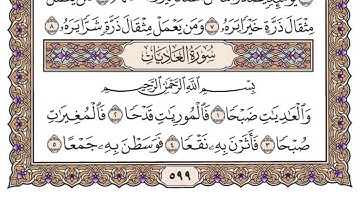 مِثْقَالَ ذَرَّةٍ خَيْرًا يَرَهُۥ ٧ وَمَن يَعْمَلْ مِثْقَالَ ذَرَّةٍ شَرًّا يَرَهُۥ ٨
سُورَةُ العَادِيَاتِ
بِسْمِ ٱللَّهِ ٱلرَّحْمَٰنِ ٱلرَّحِيمِ
وَٱلْعَٰدِيَٰتِ ضَبْحًا ١ فَٱلْمُورِيَٰتِ قَدْحًا ٢ فَٱلْمُغِيرَٰتِ
صُبْحًا ٣ فَأَثَرْنَ بِهِۦ نَقْعًا ٤ فَوَسَطْنَ بِهِۦ جَمْعًا ٥
٥٩٩